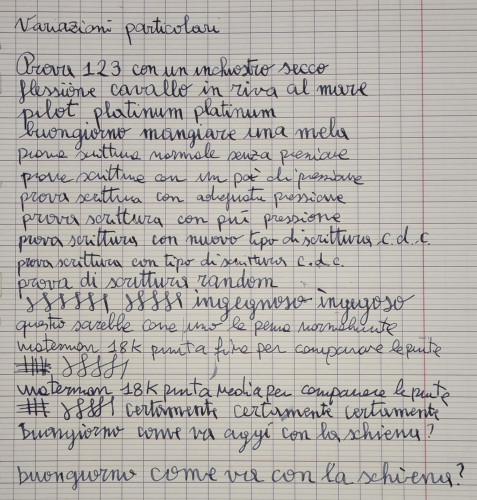 Variazioni particolari
Prova 123 con un inchiostro secco
flessiione cavallo in riva al mare
pilot platinum platinum
buongiorno mangiare una mela
prova scrittura normale senza pressione
prova scrittura con un po' di pressione
prova scrittura con adeguata pressione
prova scrittura con più pressione
prova scrittura con nuovo tipo di scrittura c.d.c.
prova scrittura con tipo di scrittura c.d.c.
prova di scrittura random
ingegnoso ingegoso
questo sarebbe come uno la penna normalmente
waterman 18K punta fine per comparare le punte
waterman 18K punta media per comparare le punte
certamente certamente certamente
buongiorno come va oggi con la schiena?
buongiorno come va con la schiena?